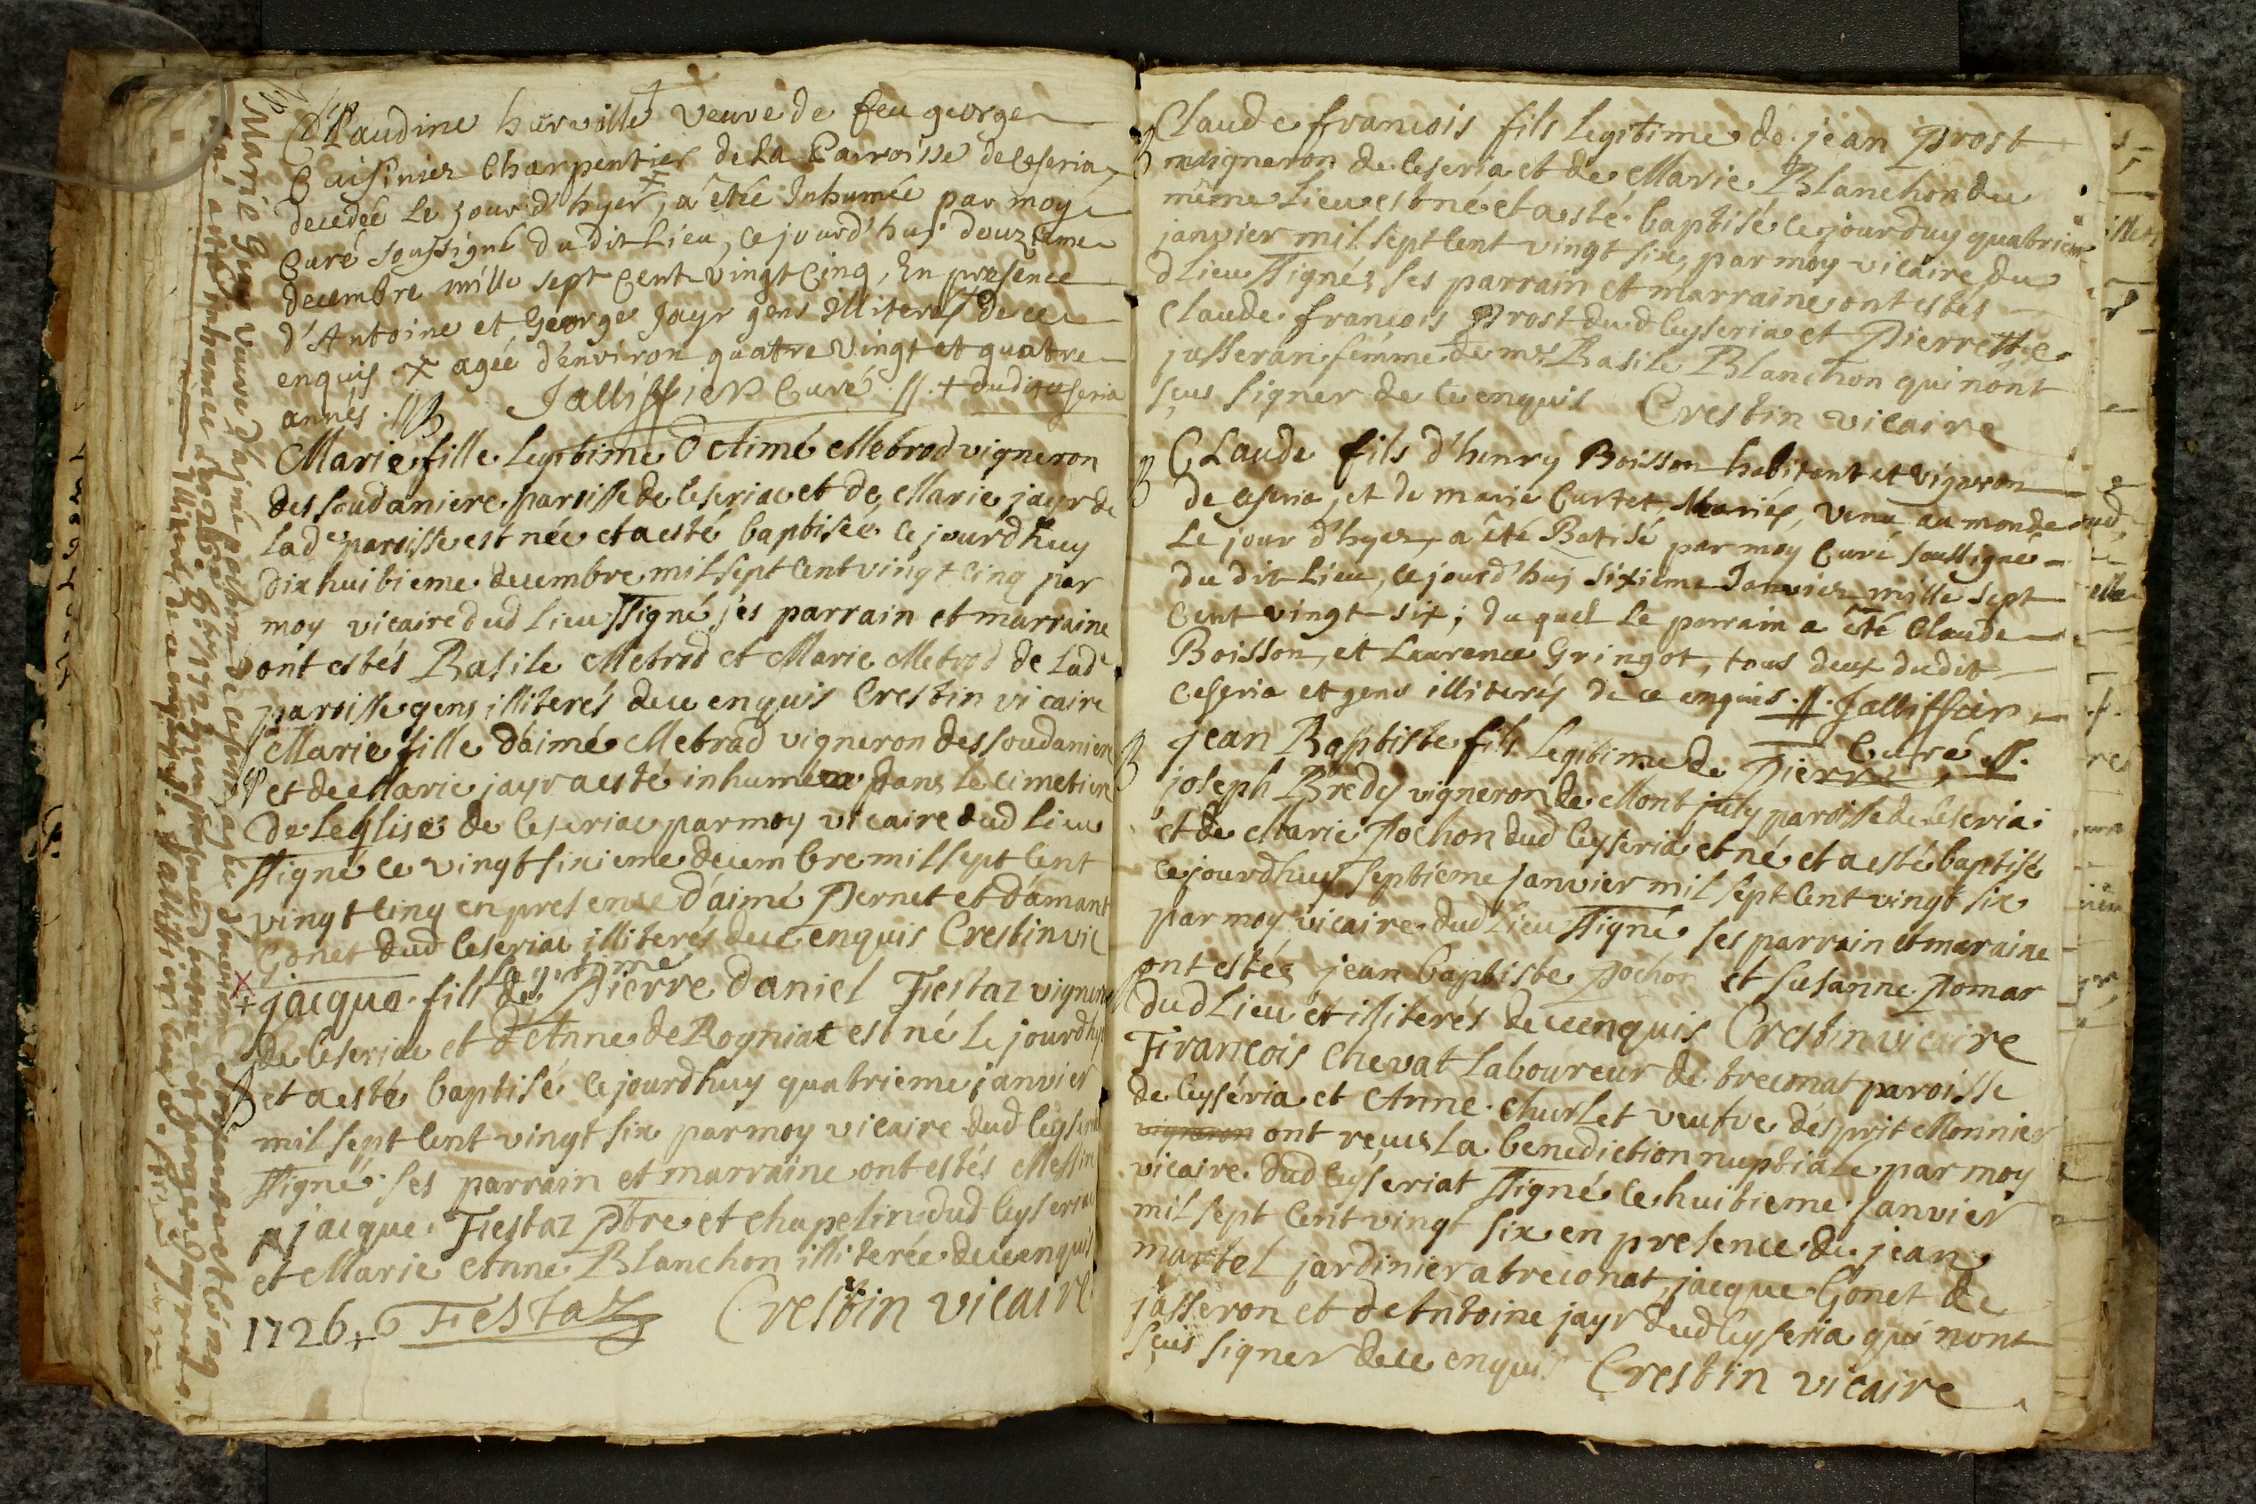 Claudine hurville veuve de feu george
Cuisinier Charpentier de la Parroisse de Ceseria
decedée le jour d'hyer, + a êtée Inhumée par moy
Curé soussigné du dit Lieu, ce jourd'huy douzieme
decembre mille sept cent vingt cinq, En presence
d'Antoine et George Jayr gens illiterés de ce
enquis + agée d'environ quatre vingt et quatre
annés. //
Jallissier Curé //. + dudit Ceseria
B Marie fille legitime d'Aimé Metrod vigneron
des soudaniere paroisse de Ceseriac et de Marie jayr de
lade paroisse est née et a esté baptisée ce jourdhuy
dixhuitieme decembre mil sept cent vingt cinq par
moy vicaire dud lieu ssigné ses parrain et marraine
ont estés Basile Metrod et Marie Metrod de lade
paroisse gens illiterés de ce enquis Crestin vicaire
Marie fille d'aimé Metrad vigneron des soudaniere
et de Marie jayr a esté inhumée dans le cimetiere
de leglise de Ceseriac par moy vicaire dud lieu
ssigné ce vingt sixieme decembre mil sept cent
vingt cinq en presence d'aimé Pernet et d'amant
Gonet dud Ceseriac illiterés de ce enquis Crestin vic
legitime
+ jacque fils de Pierre Daniel Festaz vigneron
de Ceseriac et d'Anne de Rogniat est né le jourdhyer
B et a esté baptisé ce jourdhuy quatrieme janvier
mil sept cent vingt six par moy vicaire dud Ceyseria
ssigné ses parrain et marraine ont estés Messire
jacque Festaz ptre et chapelin dud Ceyseriac
et Marie Anne Blanchon illiterée de ce enquis
1726 + Festaz Crestin vicaire
Marie Guy veuve d'ajmé pochon de Ceseria agée d'environ soixante et cinq
ans, a été inhumée
Claude francois fils legitime de jean Prost
B vigneron de Ceseria et de Marie Blanchon du
même lieu est né et a esté baptisé ce jourduy quatrieme
janvier mil sept cent vingt six, par moy vicaire du
d lieu ssignés ses parrain et marraine ont estés
Claude francois Prost dud Ceyseria et Pierrette
josseran femme de mr Basile Blanchon qui nont
sçus signer de ce enquis Crestin vicaire
B Claude fils d'henry Boisson habitant et vigneron
de Ceseria, et de marie Curtet, Mariés, venu au monde
le jour d'hyer, a été Batisé par moy Curé soussigné
du dit Lieu, ce jourd'huj sixieme Janvier mille sept
cent vingt six; du quel le parrain a êté Claude
Boisson, et Laurence Gringot, tous deux dudit
Ceseria et gens illiterés de ce enquis. //. Jallissier
Curé //.
B jean Baptiste fils legitime de Pierre
joseph Bredy vigneron de Mont july paroisse de Ceseria
et de Marie Pochon dud Ceyseria et né et a esté baptisé
ce jourdhuy septieme janvier mil sept cent vingt six
par moy vicaire dud lieu ssigné ses parrain et maraine
ont estés jean baptiste Pochon et Susanne Pomar
dud lieu et illiterés de ce enquis Crestin vicaire
Francois Chevat laboureur de treconat paroisse
de Ceyséria et Anne Churlet veufve d'esprit Monnier
vigneron ont reçus la benediction nuptiale par moy
vicaire dud Ceyseriat ssigné ce huitieme janvier
mil sept cent vingt six en presence de jean
martel jardinier a treconat, jacque Gonet de
jasseron et d'Antoine jayr dud Ceyseria qui nont
sçus signer de ce enquis Crestin vicaire